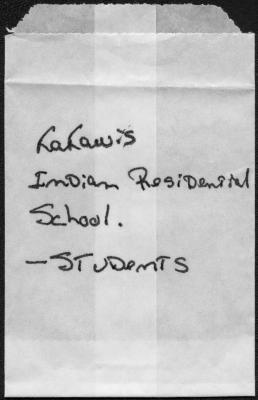 Kakawis
Indian Residential
School.
- STUDENTS